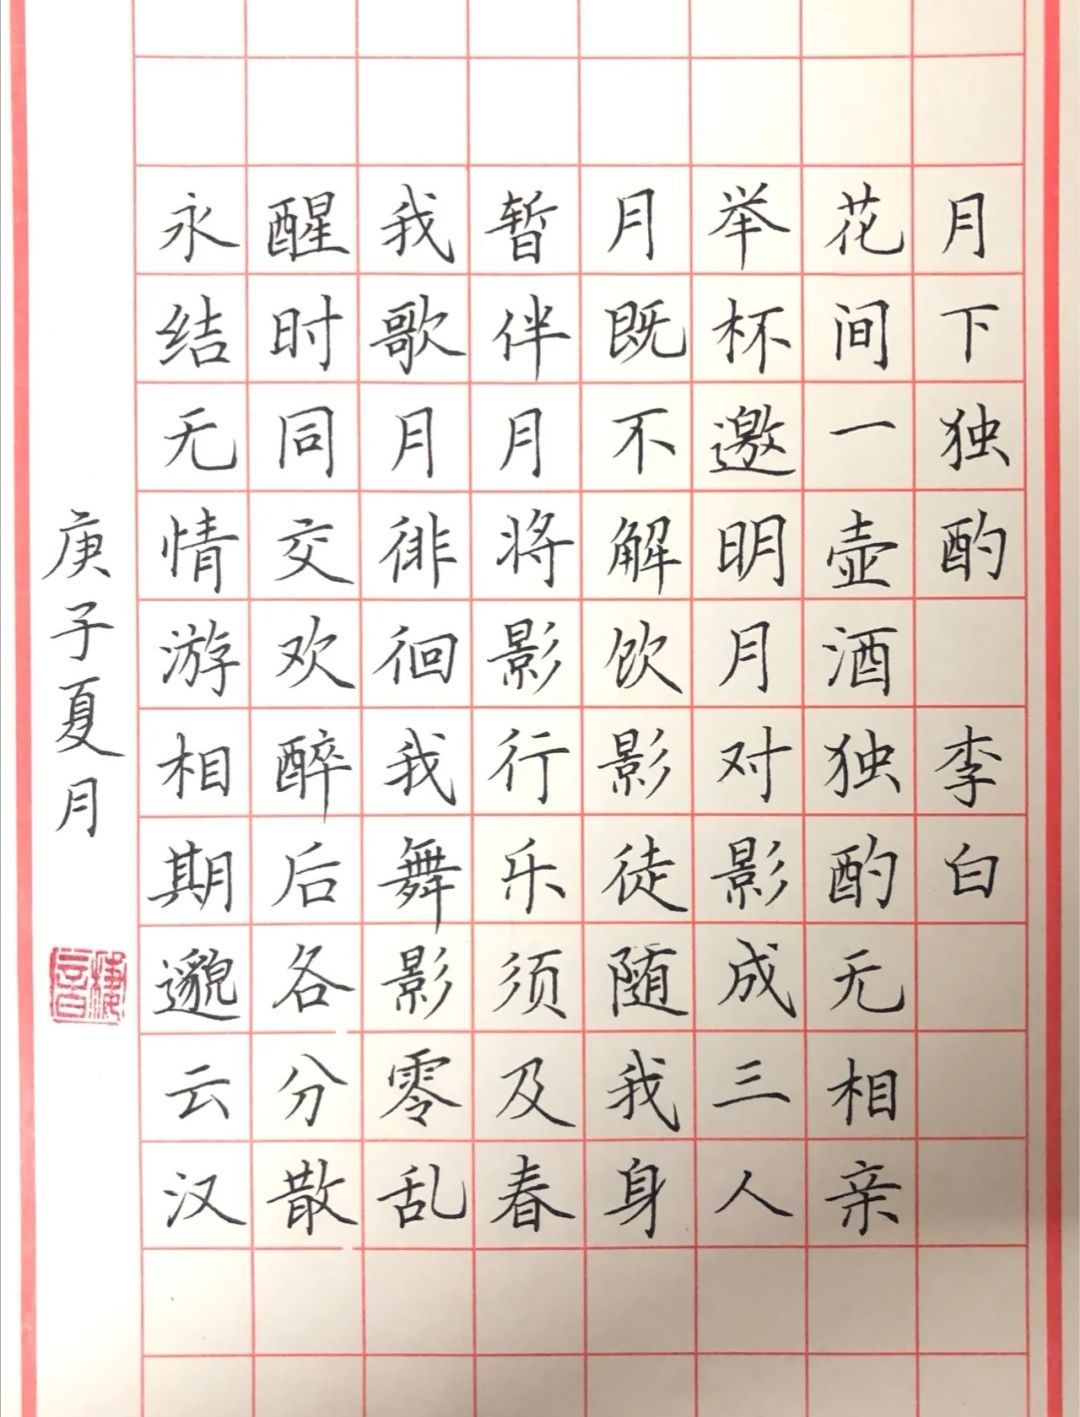 月下独酌 李白
花间一壶酒独酌无相亲
举杯邀明月对影成三人
月既不解饮影徒随我身
暂伴月将影行乐须及春
我歌月徘徊我舞影零乱
醒时同交欢醉后各分散
永结无情游相期邈云汉
庚子夏月